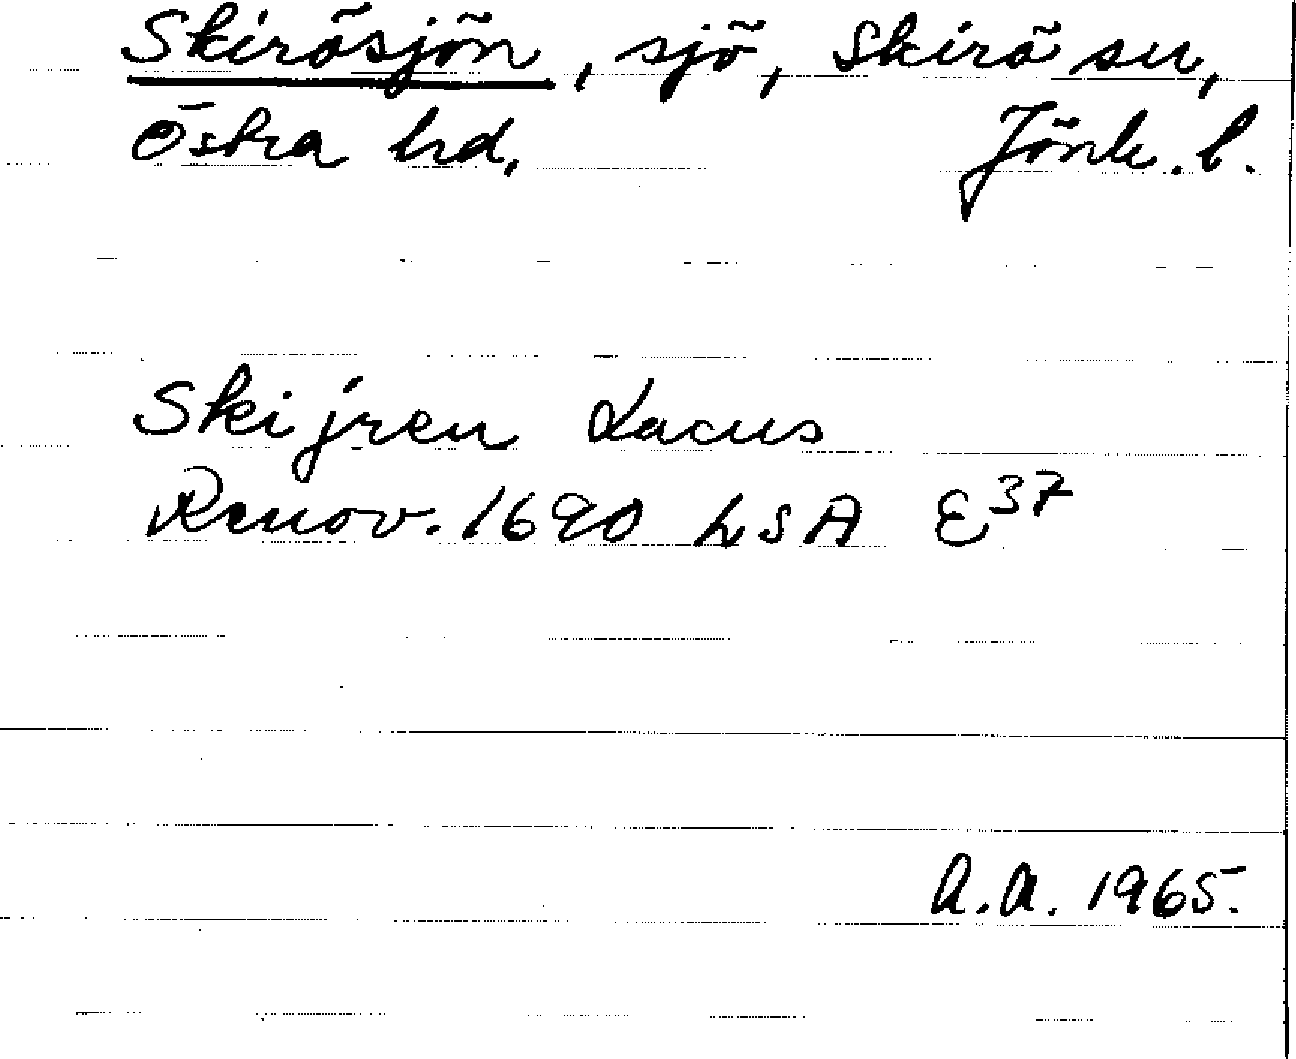 Skirösjön, sjö, Skirö sn,
Östra hd. Jönk. l.
Skijren Lacus
Renov. 1690 LSA E³⁷
A.A. 1965.